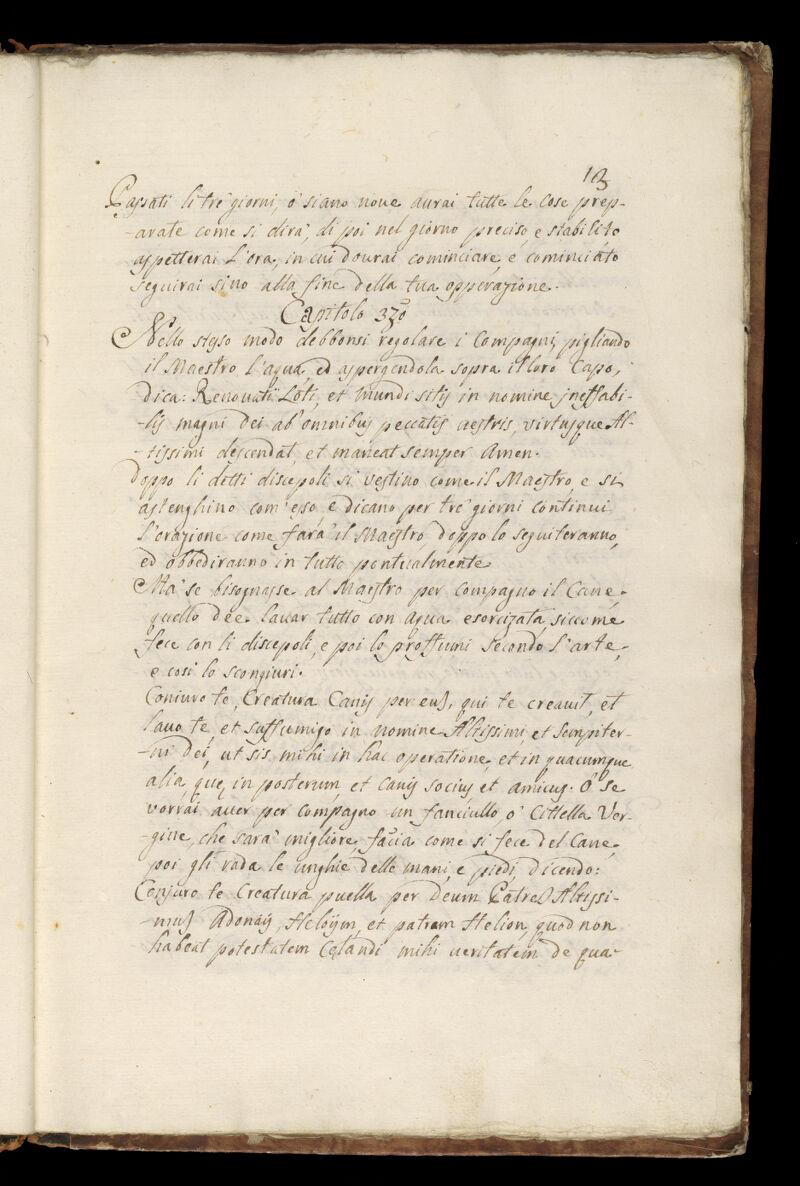 13
Passati li trè giorni, ó siano noue aurai tutte le Cose prep-
-arate come si dirà, di poi nel giorno preciso, e stabilito
aspetterai L'ora, in cui dourai cominciare, e cominciato
seguirai sino alla fine della tua opperazione.
Capitolo 3zo
Nello stesso modo debbonsi regolare i Compagni, pigliando
il Maestro l'aqua, ed aspergendola sopra il loro Capo,
dica: Renouati Loti, et mundi sitis in nomine ineffabi-
-lis magni Dei ab omnibus peccatis uestris, virtusque Al-
-tissimi descendat, et maneat semper Amen.
Doppo li detti discepoli si vestino come il Maestro, e si
astenghino com'esso, e dicano per trè giorni continui
l'orazione come farà il Maestro, doppo lo seguiteranno,
ed obbediranno in tutto pontualmente
Mà se bisognasse al Maestro per Compagno il Cane.
quello dee lauar tutto con aqua esorcizata siccome
fece con li discepoli, e poi lo proffumi secondo l'arte,
e così lo scongiuri.
Coniuro te, Creatura Canis per eum, qui te creauit, et
lauo te, et suffumigo in nomine Altissimi et Sempiter-
-ni Dei, ut sis mihi in hac operatione, et in quacumque
alia, que, in posterum, et Canis socius et amicus. O' se
vorrai auer per Compagno un fanciullo o' Cittella Ver-
-gine, che sarà migliore, facia come si fece del Cane,
poi gli rada le unghie delle mani, e piedi, dicendo:
Conjuro te Creatura puella per Deum Patrem Altissi-
-mum Adonay, Heloÿm, et patrem Helion, quod non
habeat potestatem Celandi mihi ueritatem de qua-